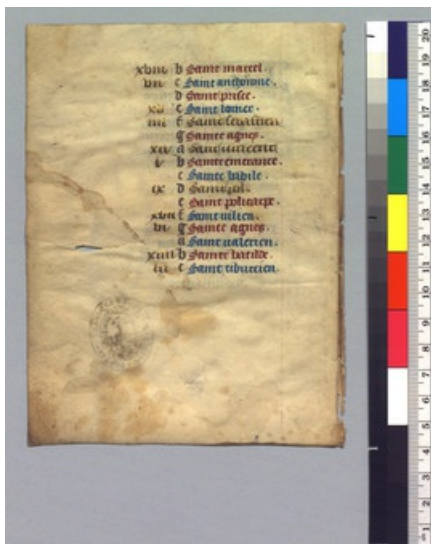 xviii b Saint marcel.
vii c Saint anthoine.
d Sainte prisce.
xv e Saint lomer.
iiii f Saint sebastien
g Sainte agnes.
xii a Saint vincent
i b Sainte emerance.
c Saint babile.
ix d Saint pol.
e Saint policarpe.
xvii f Saint iulien.
vi g Sainte agnes.
a Saint valerien.
xiiii b Sainte batilde.
iii c Saint tiburcien.